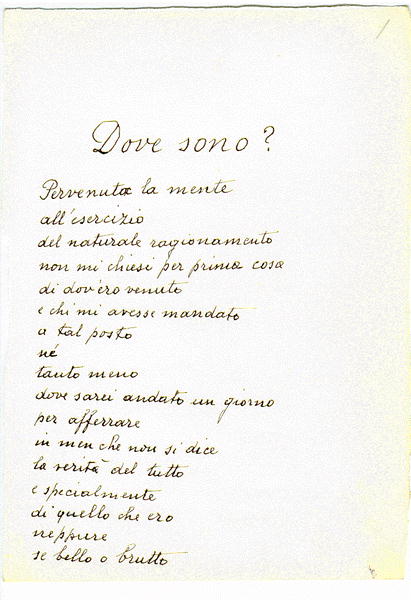 Dove sono?
Pervenuta la mente
all'esercizio
del naturale ragionamento
non mi chiesi per prima cosa
di dov'ero venuto
e chi mi avesse mandato
a tal posto
né
tanto meno
dove sarei andato un giorno
per afferrare
in men che non si dice
la verità del tutto
e specialmente
di quello che ero
neppure
se bello o brutto